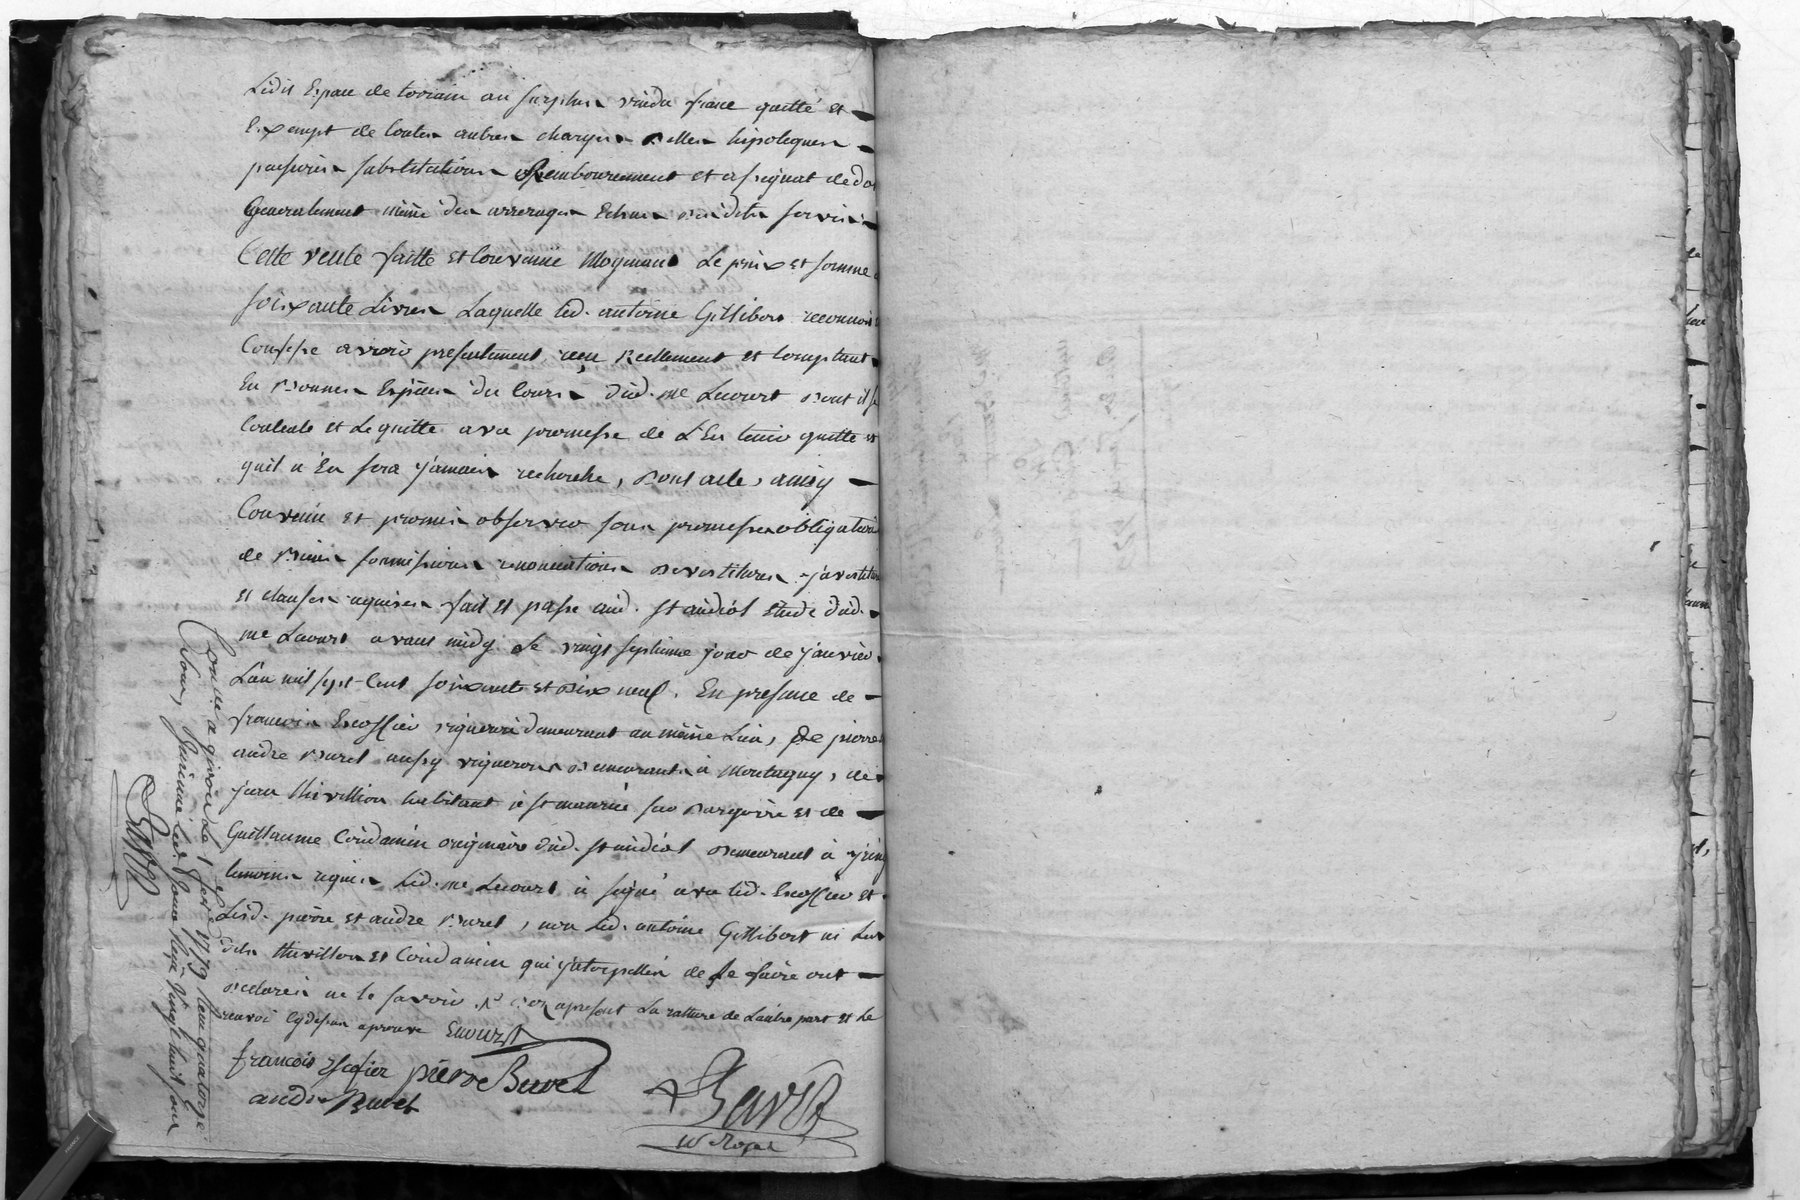 Ledit Espace de terrain au surplus vendu franc quitte et
Exempt de toutes autres charges dettes hipoteques
pensions substitutions Remboursement et assignat de dot
Generalement même des arrerages Echus desdits servis
Cette vente faitte et Convenüe Moyenant Le prix et somme
soixante Livres Laquelle led. antoine Gillibert reconnoit
Confesse avoir presentement reçu Reellement et Comptant
En Bonnes Espèces du Cours dud. me Lecourt dont il se
Contente et Le quitte avec promesse de L'En tenir quitte et
quil n'En sera jamais recherche, dont acte, ainsy
Convenu et promis observer sous promesses obligations
de Biens soumissions renonciations devestitures jnvestitures
et clauses requises fait et passe aud. st andéol Etude dud.
me Lecourt avant midy Le vingt septieme jour de janvier
L'an mil sept-cent soixante et dix neuf. En presence de
francois Escoffier vigneron demeurant au même Lieu, De pierre
andre Buret aussy vignerons demeurants à Montagny, de
jean thivillion habitant à st maurice sur dargoire et de
Guillaume Condamin originaire dud. st andéol demeurant à
temoins requis Led. me Lecourt à signé avec led. Escoffier et
Lesd. pierre et andre Buret, non Led. antoine Gillibert ni Les
dits thivillon et Condamin qui jnterpellés de Le faire ont
declarés ne le savoir La ratture de Lautre part et le
renvoi cydessus aprouve
francois Escofier pierre Buret
andre Buret
Controllé a givors le 1 fer 1779 Recu quatorze
sous, vingt huit sous